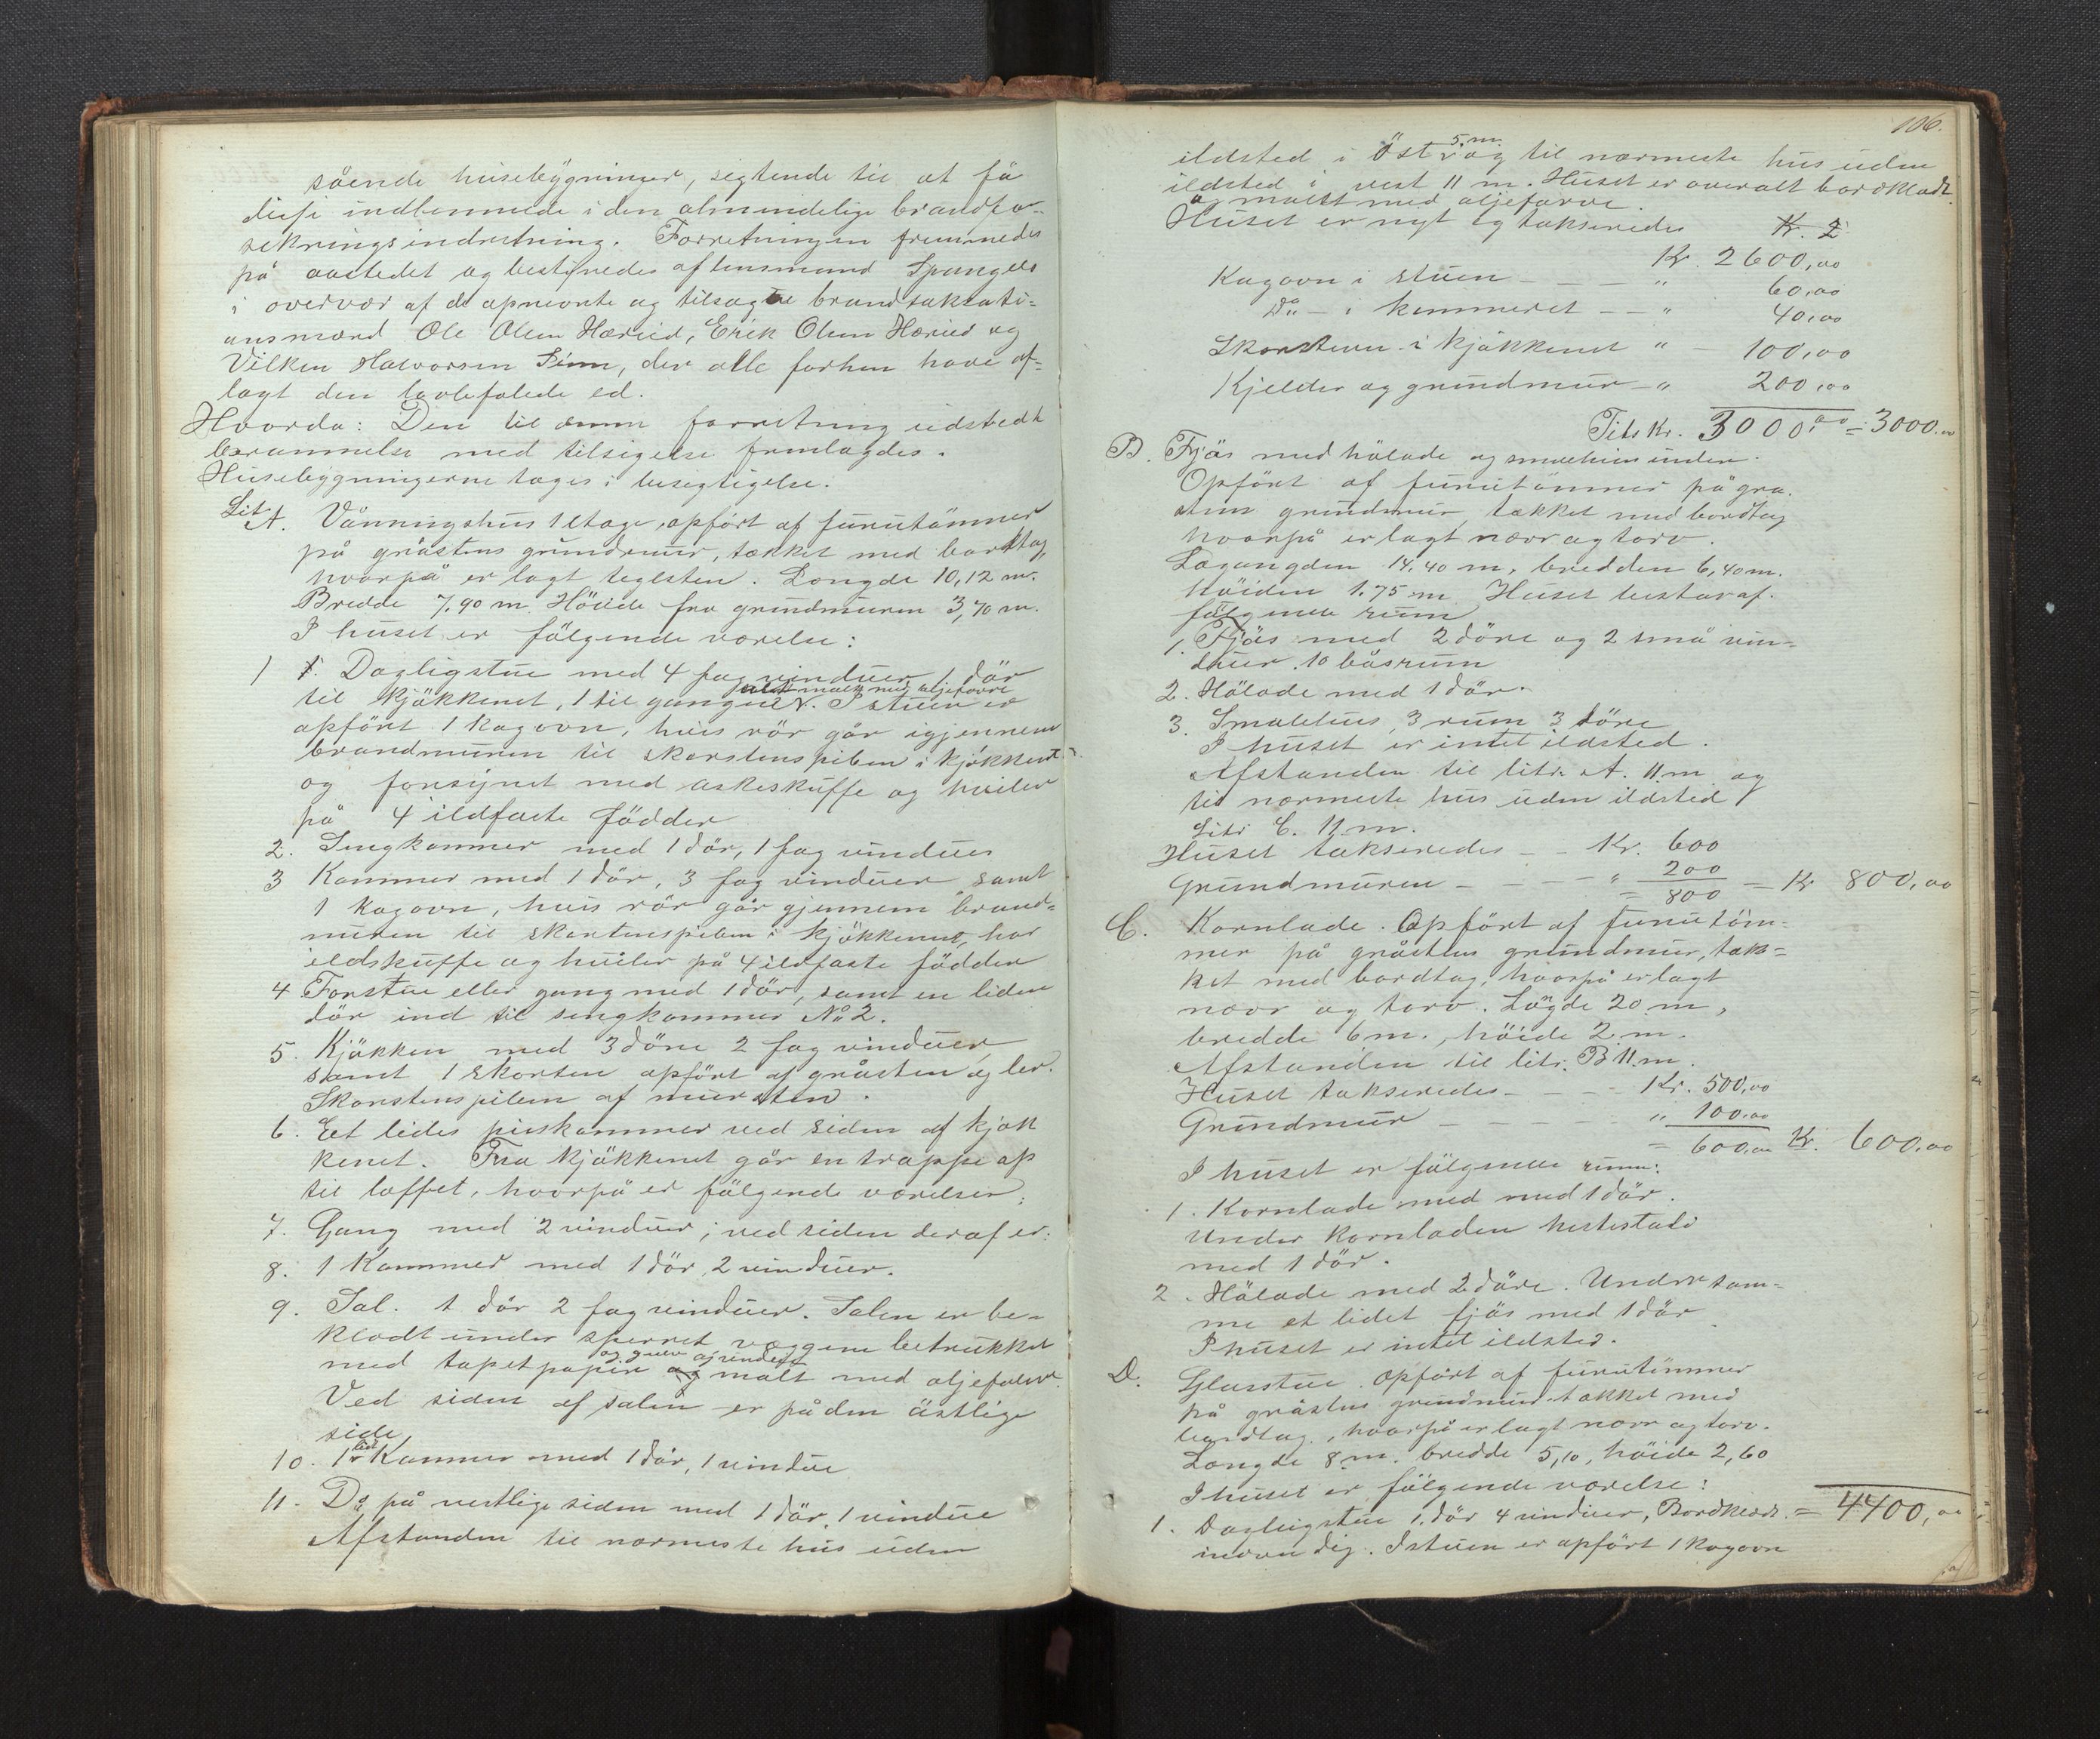 såending husebygninger, sigtende til at få
disse indlemmede i den almindelige brandfor-
sekringsindretning. Forretningen fremmedes
på aastedet og bestyredes af lensmand Spangelo
i overvær af de opnevnte og tilsagte brandtakstati-
onsmænd Ole Olsen Hæreid, Erik Olsen Hæreid og
Vilken Halvorsen Simn, der alle forhen have af-
lagt den lovbefalede ed.
Hvorda: Den til denne forretning udstedt
berammelse med tilsigelse fremlagdes.
Husebygningerne toges i besegtigelse.
Lit A. Våningshus 1 etage, opført af furutömmer
på gråstens grundmuur, tækket med bordtag
hvorpå er lagt teglsten. Længde 10,12 m.
Bredde 7,90 m. Höide fra grundmuren 3,70 m.
I huset er fölgende værelse:
1 1. Dagligstue med 4 fag vinduer, 1 dör
til kjökkenet, 1 til gangen malt med oljefarve. I stuen er
opfört 1 kagovn, hvis rör går igjennem
brandmuren til skorstenspiben i kjökkenet
og forsynet med askeskuffe og hviler
på 4 ildfaste födder
2. Sengkammer med 1 dör, 1 fag vinduer
3 Kammer med 1 dör, 3 fag vinduer samt
1 kagovn, hvis rör går gjennem brand-
muren til skorstenspiben i kjökkenet, har
ildskuffe og hviler på 4 ildfaste födder
4 Forstue eller gang med 1 dör, samt en liden
dör ind til sengkammer No 2.
5. Kjökken med 3 döre 2 fag vinduer,
samt 1 skorsten opfört af gråsten og ler.
Skorstenspiben af mursten.
6. Eet lidet piskammer ved siden af kjök
kenet. Fra kjökkenet går en trappe op
til loftet, hvorpå er fölgende værelser:
7. Gang med 2 vinduer; ved siden deraf er:
8. 1 Kammer med 1 dör, 2 vinduer.
9. Sal. 1 dör 2 fag vinduer. Salen er be-
klædt under sperret væggene betrukket
med tapetpapir og malt med oljefarve.
Ved siden af salen er på den östlige
side
10. 1 lidet Kammer med 1 dör, 1 vindue
11. Do på vestlige siden med 1 dör, 1 vindue
Afstanden til nærmeste hus uden
106.
ildsted i Öst 5 m og til nærmeste hus uden
ildsted i vest 11 m. Huset er overalt bordklædt
og malet med oljefarve.
Huset er nyt og takseredes Kr. 2
Kr. 2600,00
Kagovn i stuen - - - " 60,00
Do - i kammeret - - " 40,00
Skorsten i kjökkenet " - 100,00
Kjelder og grundmur - " 200,00
Tils Kr. 3000,00 = 3000.00
B. Fjös med hölade og smalehus under.
Opfört af furutömmer på grå-
sten grundmur, tækket med bordtag
hvorpå er lagt nævr og torv.
Længden 14,40 m, bredden 6,40 m.
höiden 1.75 m Huset bestar af.
fölgende rum
1. Fjös med 2 döre og 2 små vin-
duer. 10 båsrum
2. Hölade med 1 dör.
3. Smalehus, 3 rum 3 döre
I huset er intet ildsted.
Afstanden til litr. A. 11 m og
til nærmeste hus uden ildsted
Litr C. 11 m.
Huset takseredes - - Kr. 600
Grundmuren - - - - " 200
= 800 = Kr 800,00
C. Kornlade. Opfört af furutöm-
mer på gråstens grundmur, tæk-
ket med bordtag, hvorpå er lagt
nævr og torv. Længde 20 m,
bredde 6 m., höide 2 m.
Afstanden til litr. B 11 m.
Huset takseredes - - - Kr. 500,00
Grundmur - - - - " 100,00
= 600,00 Kr. 600,00
I huset er fölgende rum:
1. Kornlade med med 1 dör.
Under kornladen hestestald
med 1 dör.
2. Hölade med 2 döre. Under sam-
me et lidet fjös med 1 dör
I huset er intet ildsted.
D. Glasstue. Opfört af furutömmer
på gråstens grundmur tækket med
bordtag, hvorpå er lagt nævr og torv.
Længde 8 m. bredde 5,10, höide 2,60
I huset er fölgende værelse:
1. Dagligstue 1 dör 4 vinduer, Bordklædt = 4400,00
indvendig. I stuen er opfört 1 kagovn